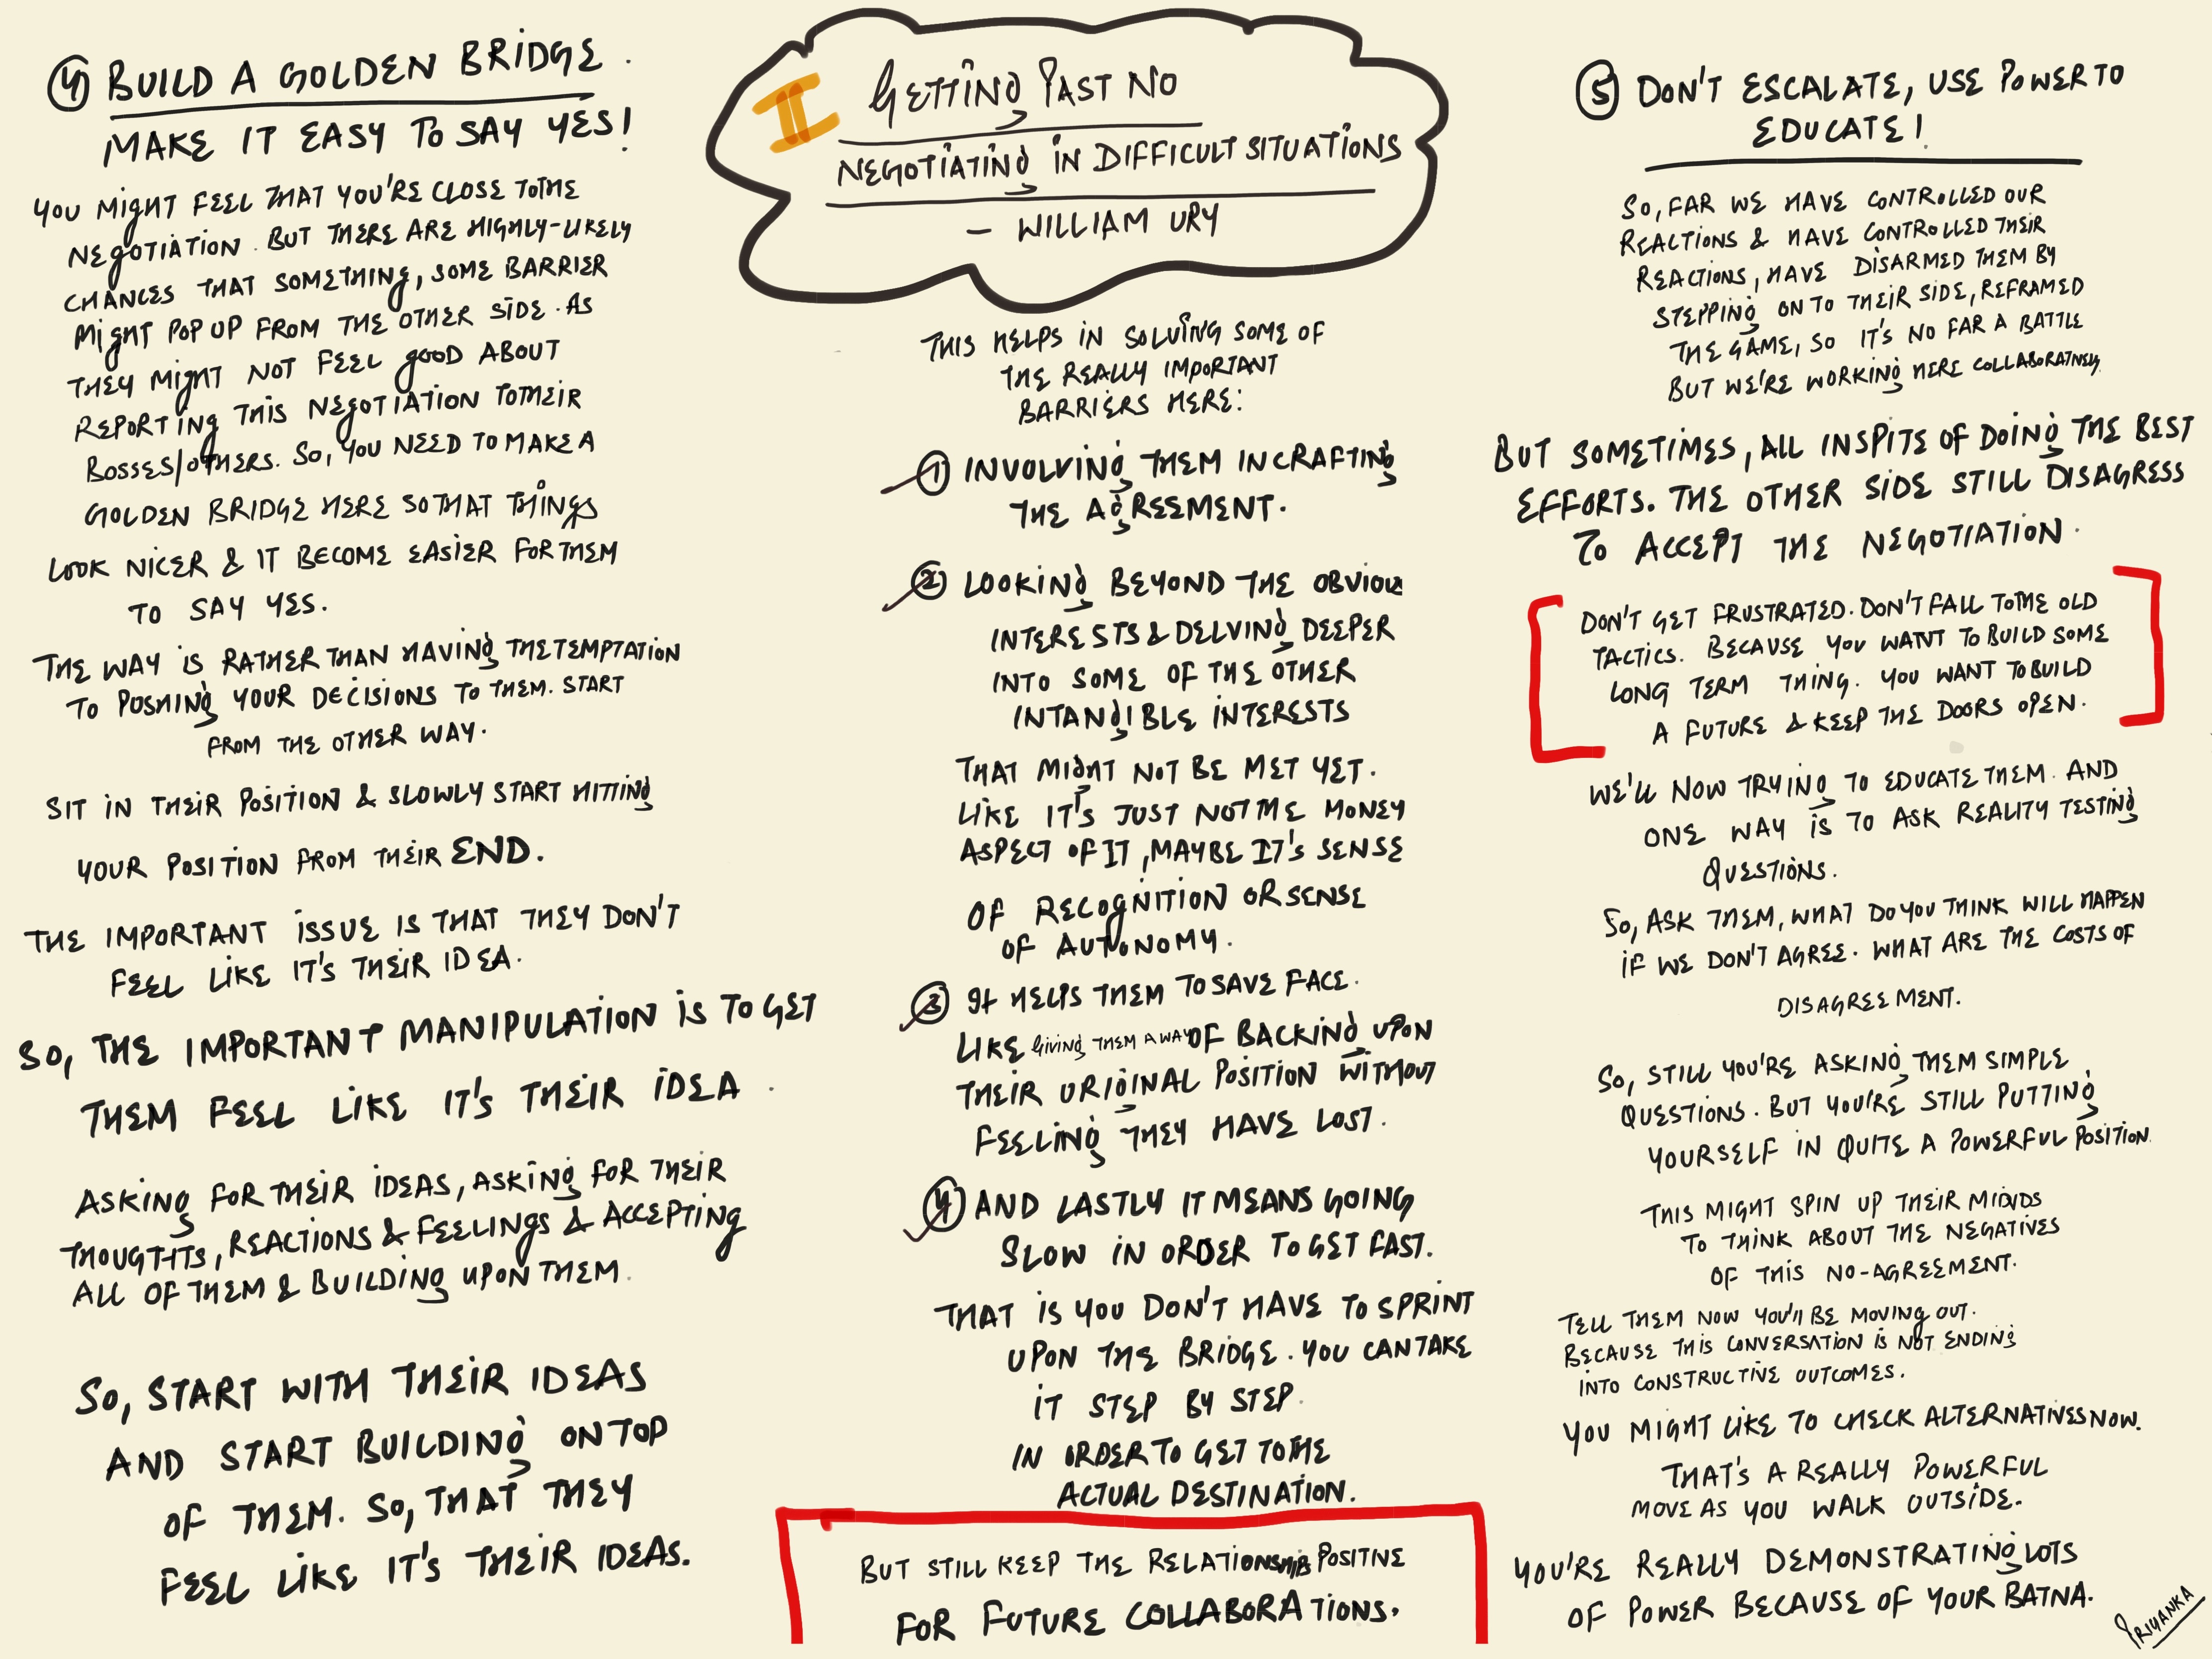 II
GETTING PAST NO
NEGOTIATING IN DIFFICULT SITUATIONS
- WILLIAM URY
④ BUILD A GOLDEN BRIDGE.
MAKE IT EASY TO SAY YES!
YOU MIGHT FEEL THAT YOU'RE CLOSE TO THE
NEGOTIATION. BUT THERE ARE HIGHLY-LIKELY
CHANCES THAT SOMETHING, SOME BARRIER
MIGHT POP UP FROM THE OTHER SIDE. AS
THEY MIGHT NOT FEEL GOOD ABOUT
REPORTING THIS NEGOTIATION TO THEIR
BOSSES/OTHERS. SO, YOU NEED TO MAKE A
GOLDEN BRIDGE HERE SO THAT THINGS
LOOK NICER & IT BECOME EASIER FOR THEM
TO SAY YES.
THE WAY IS RATHER THAN HAVING THE TEMPTATION
TO PUSHING YOUR DECISIONS TO THEM. START
FROM THE OTHER WAY.
SIT IN THEIR POSITION & SLOWLY START HITTING
YOUR POSITION FROM THEIR END.
THE IMPORTANT ISSUE IS THAT THEY DON'T
FEEL LIKE IT'S THEIR IDEA.
SO, THE IMPORTANT MANIPULATION IS TO GET
THEM FEEL LIKE IT'S THEIR IDEA.
ASKING FOR THEIR IDEAS, ASKING FOR THEIR
THOUGHTS, REACTIONS & FEELINGS & ACCEPTING
ALL OF THEM & BUILDING UPON THEM.
SO, START WITH THEIR IDEAS
AND START BUILDING ON TOP
OF THEM. SO, THAT THEY
FEEL LIKE IT'S THEIR IDEAS.
THIS HELPS IN SOLVING SOME OF
THE REALLY IMPORTANT
BARRIERS HERE:
① INVOLVING THEM IN CRAFTING
THE AGREEMENT.
② LOOKING BEYOND THE OBVIOUS
INTERESTS & DELVING DEEPER
INTO SOME OF THE OTHER
INTANGIBLE INTERESTS
THAT MIGHT NOT BE MET YET.
LIKE IT'S JUST NOT THE MONEY
ASPECT OF IT, MAYBE IT'S SENSE
OF RECOGNITION OR SENSE
OF AUTONOMY.
③ It HELPS THEM TO SAVE FACE.
LIKE GIVING THEM A WAY OF BACKING UPON
THEIR ORIGINAL POSITION WITHOUT
FEELING THEY HAVE LOST.
④ AND LASTLY IT MEANS GOING
SLOW IN ORDER TO GET FAST.
THAT IS YOU DON'T HAVE TO SPRINT
UPON THE BRIDGE. YOU CAN TAKE
IT STEP BY STEP.
IN ORDER TO GET TO THE
ACTUAL DESTINATION.
BUT STILL KEEP THE RELATIONSHIPS POSITIVE
FOR FUTURE COLLABORATIONS.
⑤ DON'T ESCALATE, USE POWER TO
EDUCATE!
SO, FAR WE HAVE CONTROLLED OUR
REACTIONS & HAVE CONTROLLED THEIR
REACTIONS, HAVE DISARMED THEM BY
STEPPING ON TO THEIR SIDE, REFRAMED
THE GAME, SO IT'S NO FAR A BATTLE
BUT WE'RE WORKING HERE COLLABORATIVELY.
BUT SOMETIMES, ALL INSPITE OF DOING THE BEST
EFFORTS. THE OTHER SIDE STILL DISAGRESS
TO ACCEPT THE NEGOTIATION.
DON'T GET FRUSTRATED. DON'T FALL TO THE OLD
TACTICS. BECAUSE YOU WANT TO BUILD SOME
LONG TERM THING. YOU WANT TO BUILD
A FUTURE & KEEP THE DOORS OPEN.
WE'LL NOW TRYING TO EDUCATE THEM. AND
ONE WAY IS TO ASK REALITY TESTING
QUESTIONS.
SO, ASK THEM, WHAT DO YOU THINK WILL HAPPEN
IF WE DON'T AGREE. WHAT ARE THE COSTS OF
DISAGREEMENT.
SO, STILL YOU'RE ASKING THEM SIMPLE
QUESTIONS. BUT YOU'RE STILL PUTTING
YOURSELF IN QUITE A POWERFUL POSITION.
THIS MIGHT SPIN UP THEIR MINDS
TO THINK ABOUT THE NEGATIVES
OF THIS NO-AGREEMENT.
TELL THEM NOW YOU'll BE MOVING OUT.
BECAUSE THIS CONVERSATION IS NOT ENDING
INTO CONSTRUCTIVE OUTCOMES.
YOU MIGHT LIKE TO CHECK ALTERNATIVES NOW.
THAT'S A REALLY POWERFUL
MOVE AS YOU WALK OUTSIDE.
YOU'RE REALLY DEMONSTRATING LOTS
OF POWER BECAUSE OF YOUR BATNA.
PRIYANKA